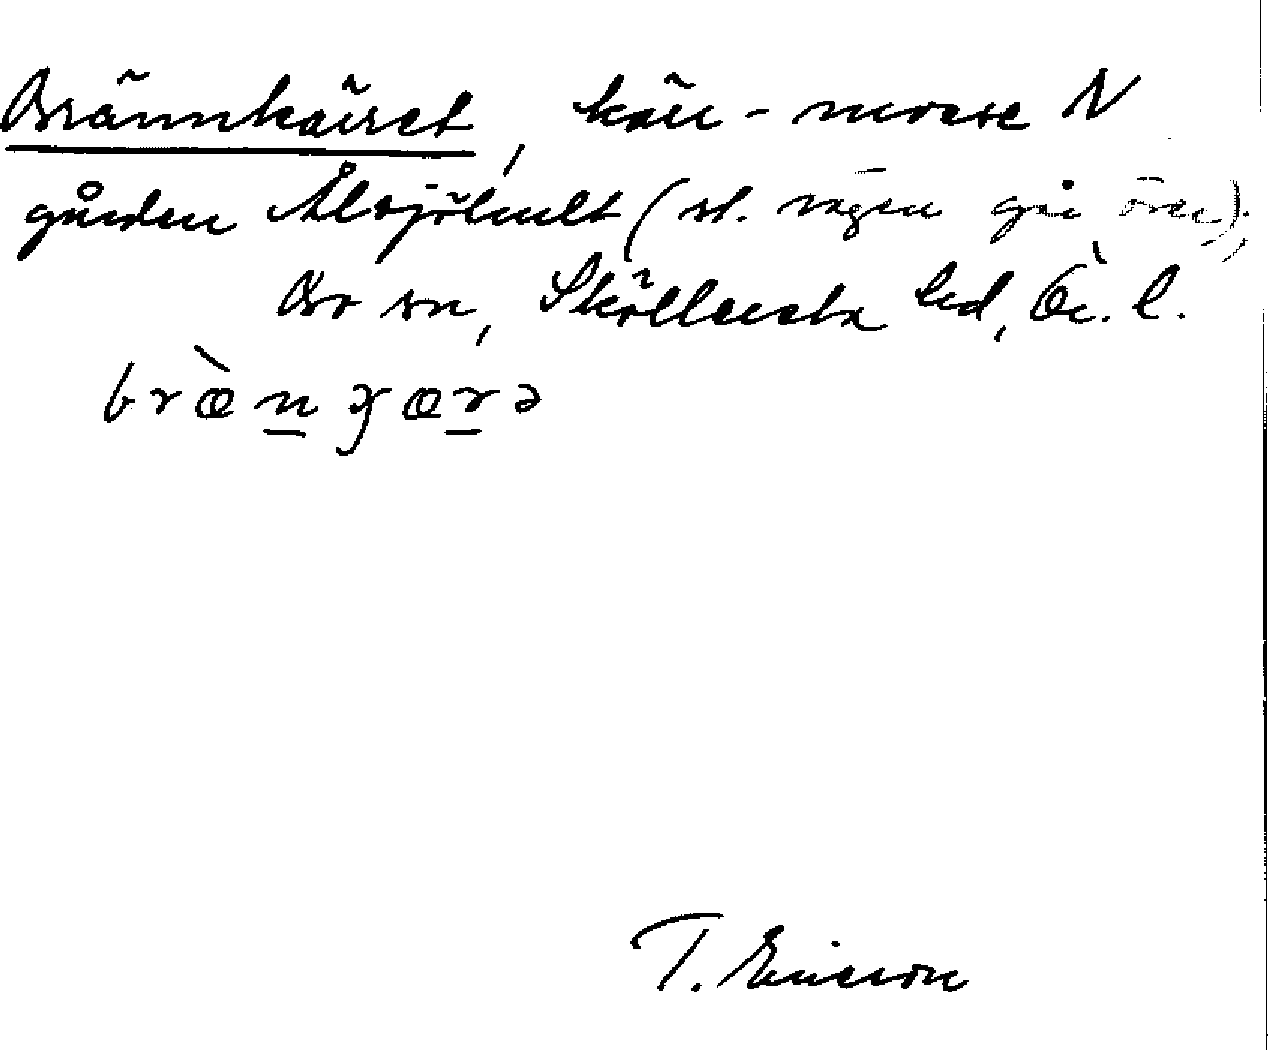 Brännkärret, kärr-mosse N
gården Ålsjöhult (st. vägen går över);
Bo sn, Sköllersta hd, Ör. l.
bræ̀nȷærə
T. Ericson